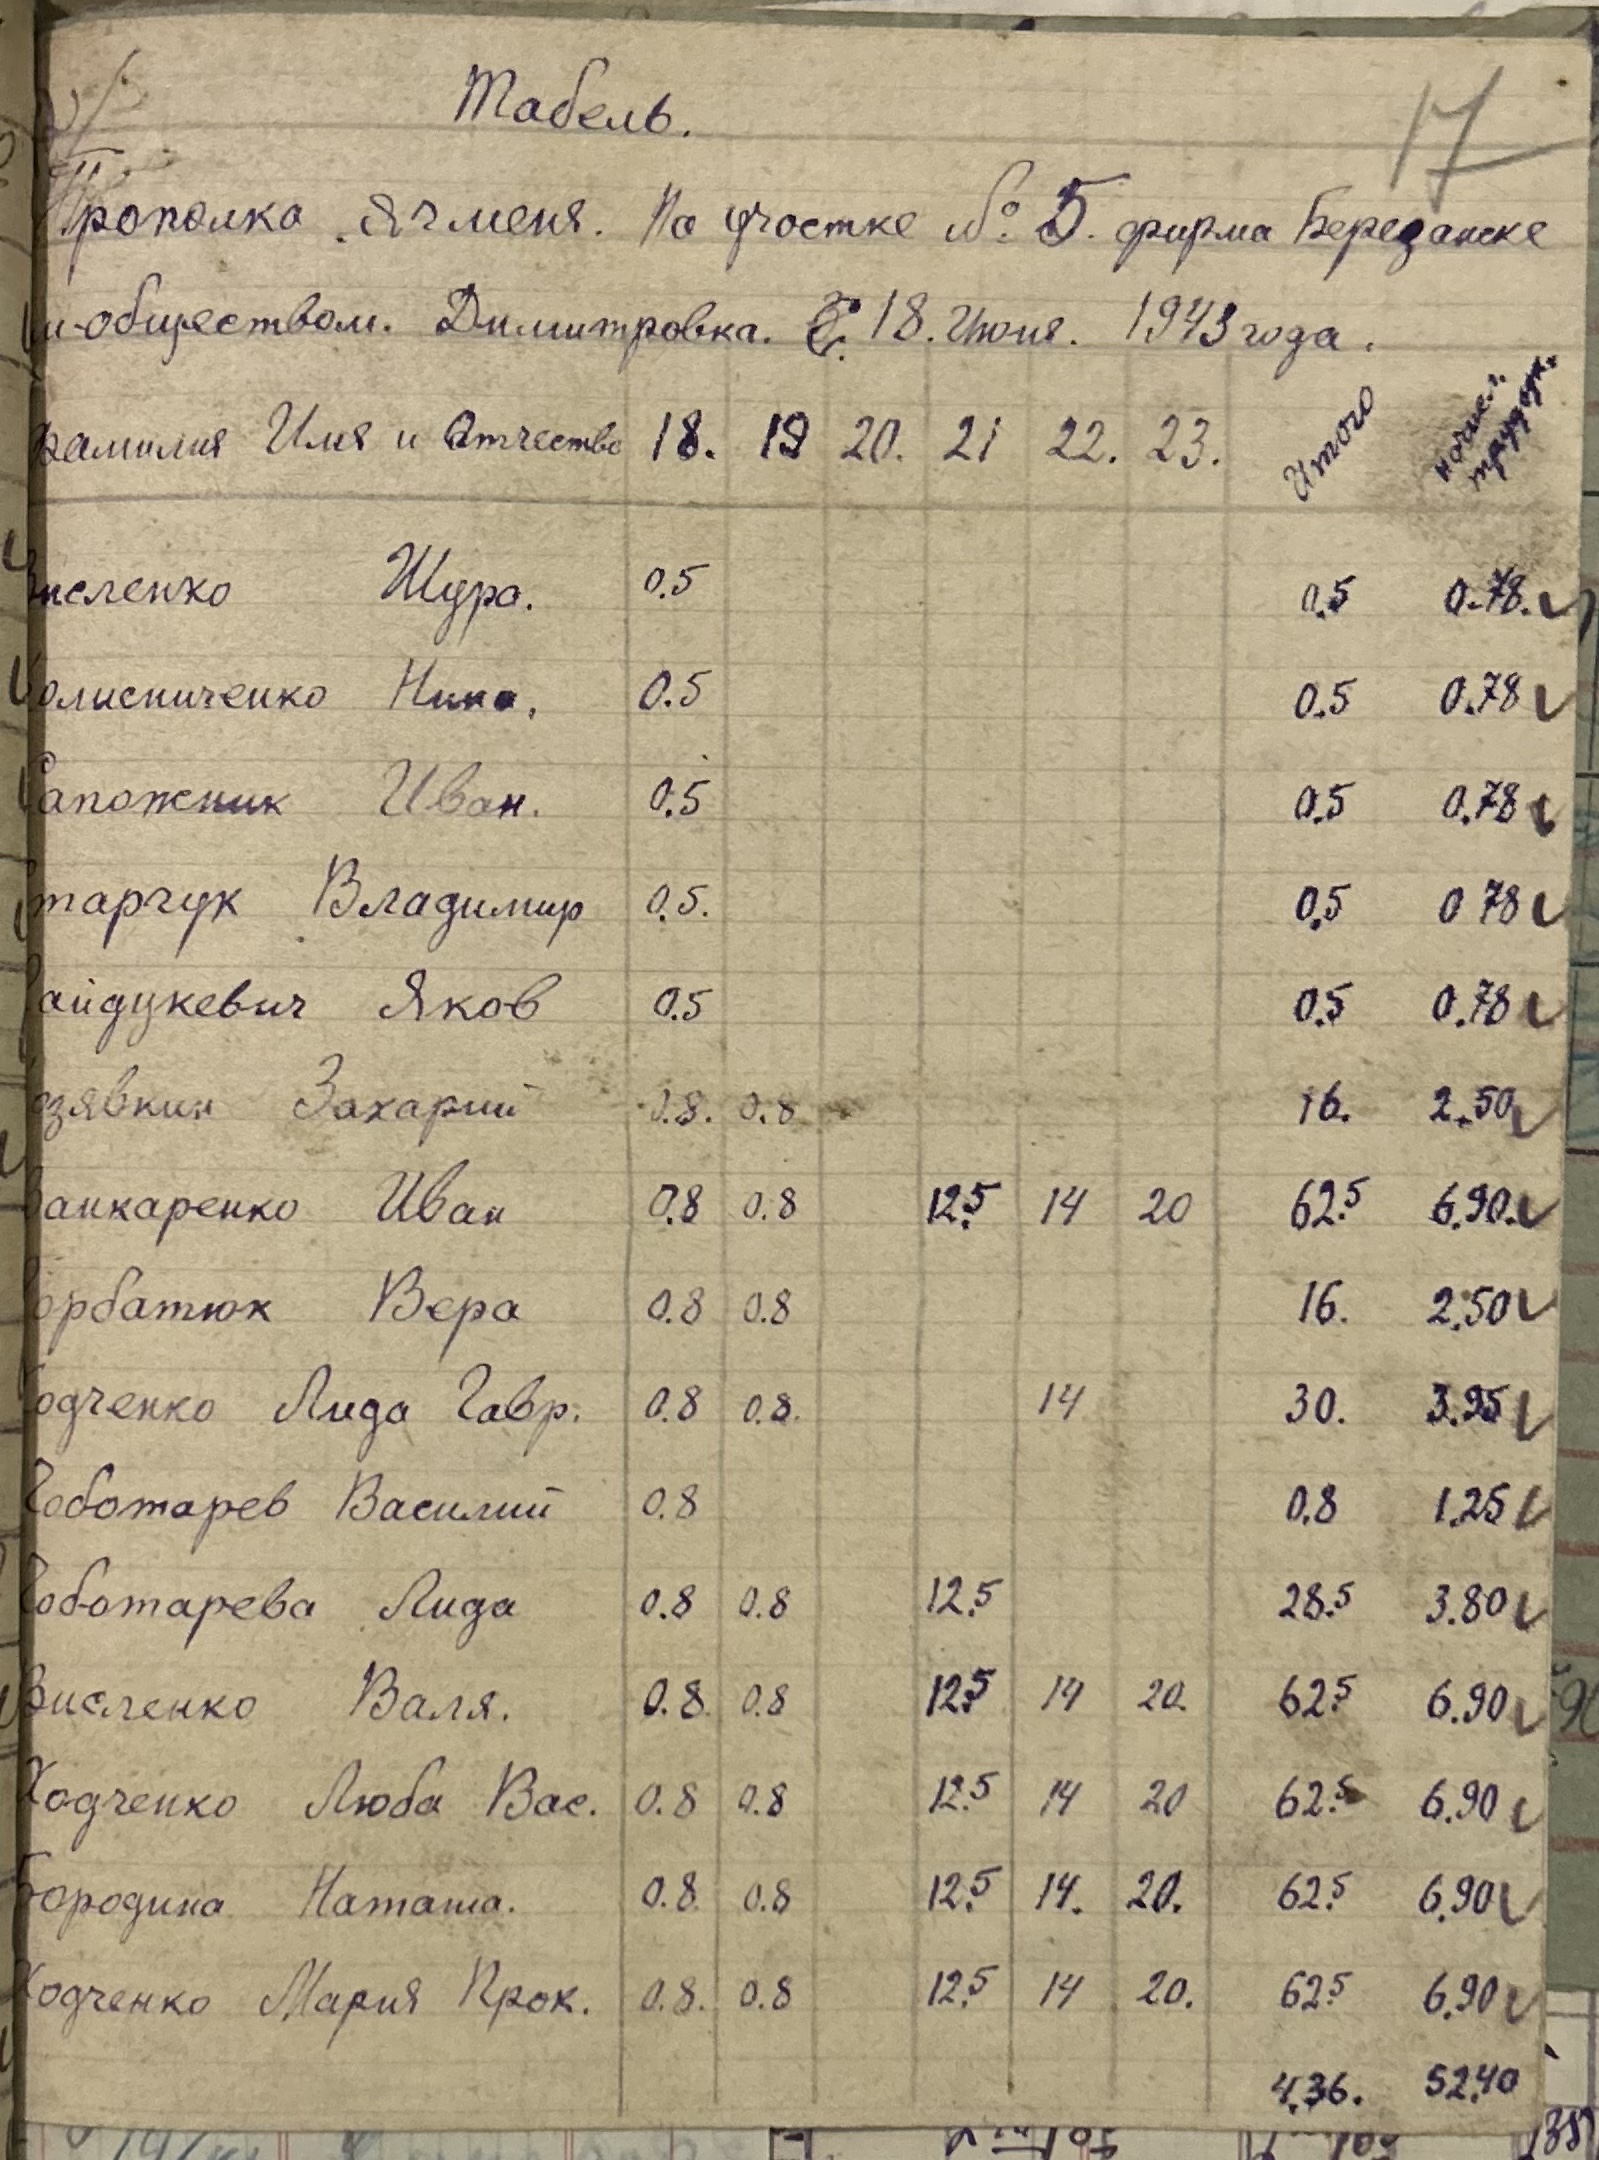 17
Табель.
Прополка Ячменя. На участке № 5. фирма Березанске
и-обществом. Димитровка. С 18. Июня. 1943 года.
Фамилия Имя и Отчество 18. 19 20. 21 22. 23. Итого
Висленко Шура. 0.5 0.5 0.78.
Колисниченко Нина. 0.5 0.5 0.78
Сапожник Иван. 0.5 0.5 0.78
Старчук Владимир 0.5. 0.5 0 78
айдукевич Яков 0.5 0.5 0.78
озявкин Захарий 0.8. 0.8 16. 2.50
анкаренко Иван 0.8 0.8 12.5 14 20 62.5 6.90.
орбатюк Вера 0.8 0.8 16. 2.50
Ходченко Лида Гавр. 0.8 0.8. 14 30. 3.95
Чоботарев Василий 0.8 0.8 1.25
Чоботарева Лида 0.8 0.8 12.5 28.5 3.80
Висленко Валя. 0.8 0.8 12.5 14 20. 62.5 6.90
Ходченко Люба Вас. 0.8 0.8 12.5 14 20 62.5 6.90
Бородина Наташа. 0.8 0.8 12.5 14. 20. 62.5 6.90
Ходченко Мария Прок. 0.8. 0.8 12.5 14 20. 62.5 6.90
4.36. 52.40